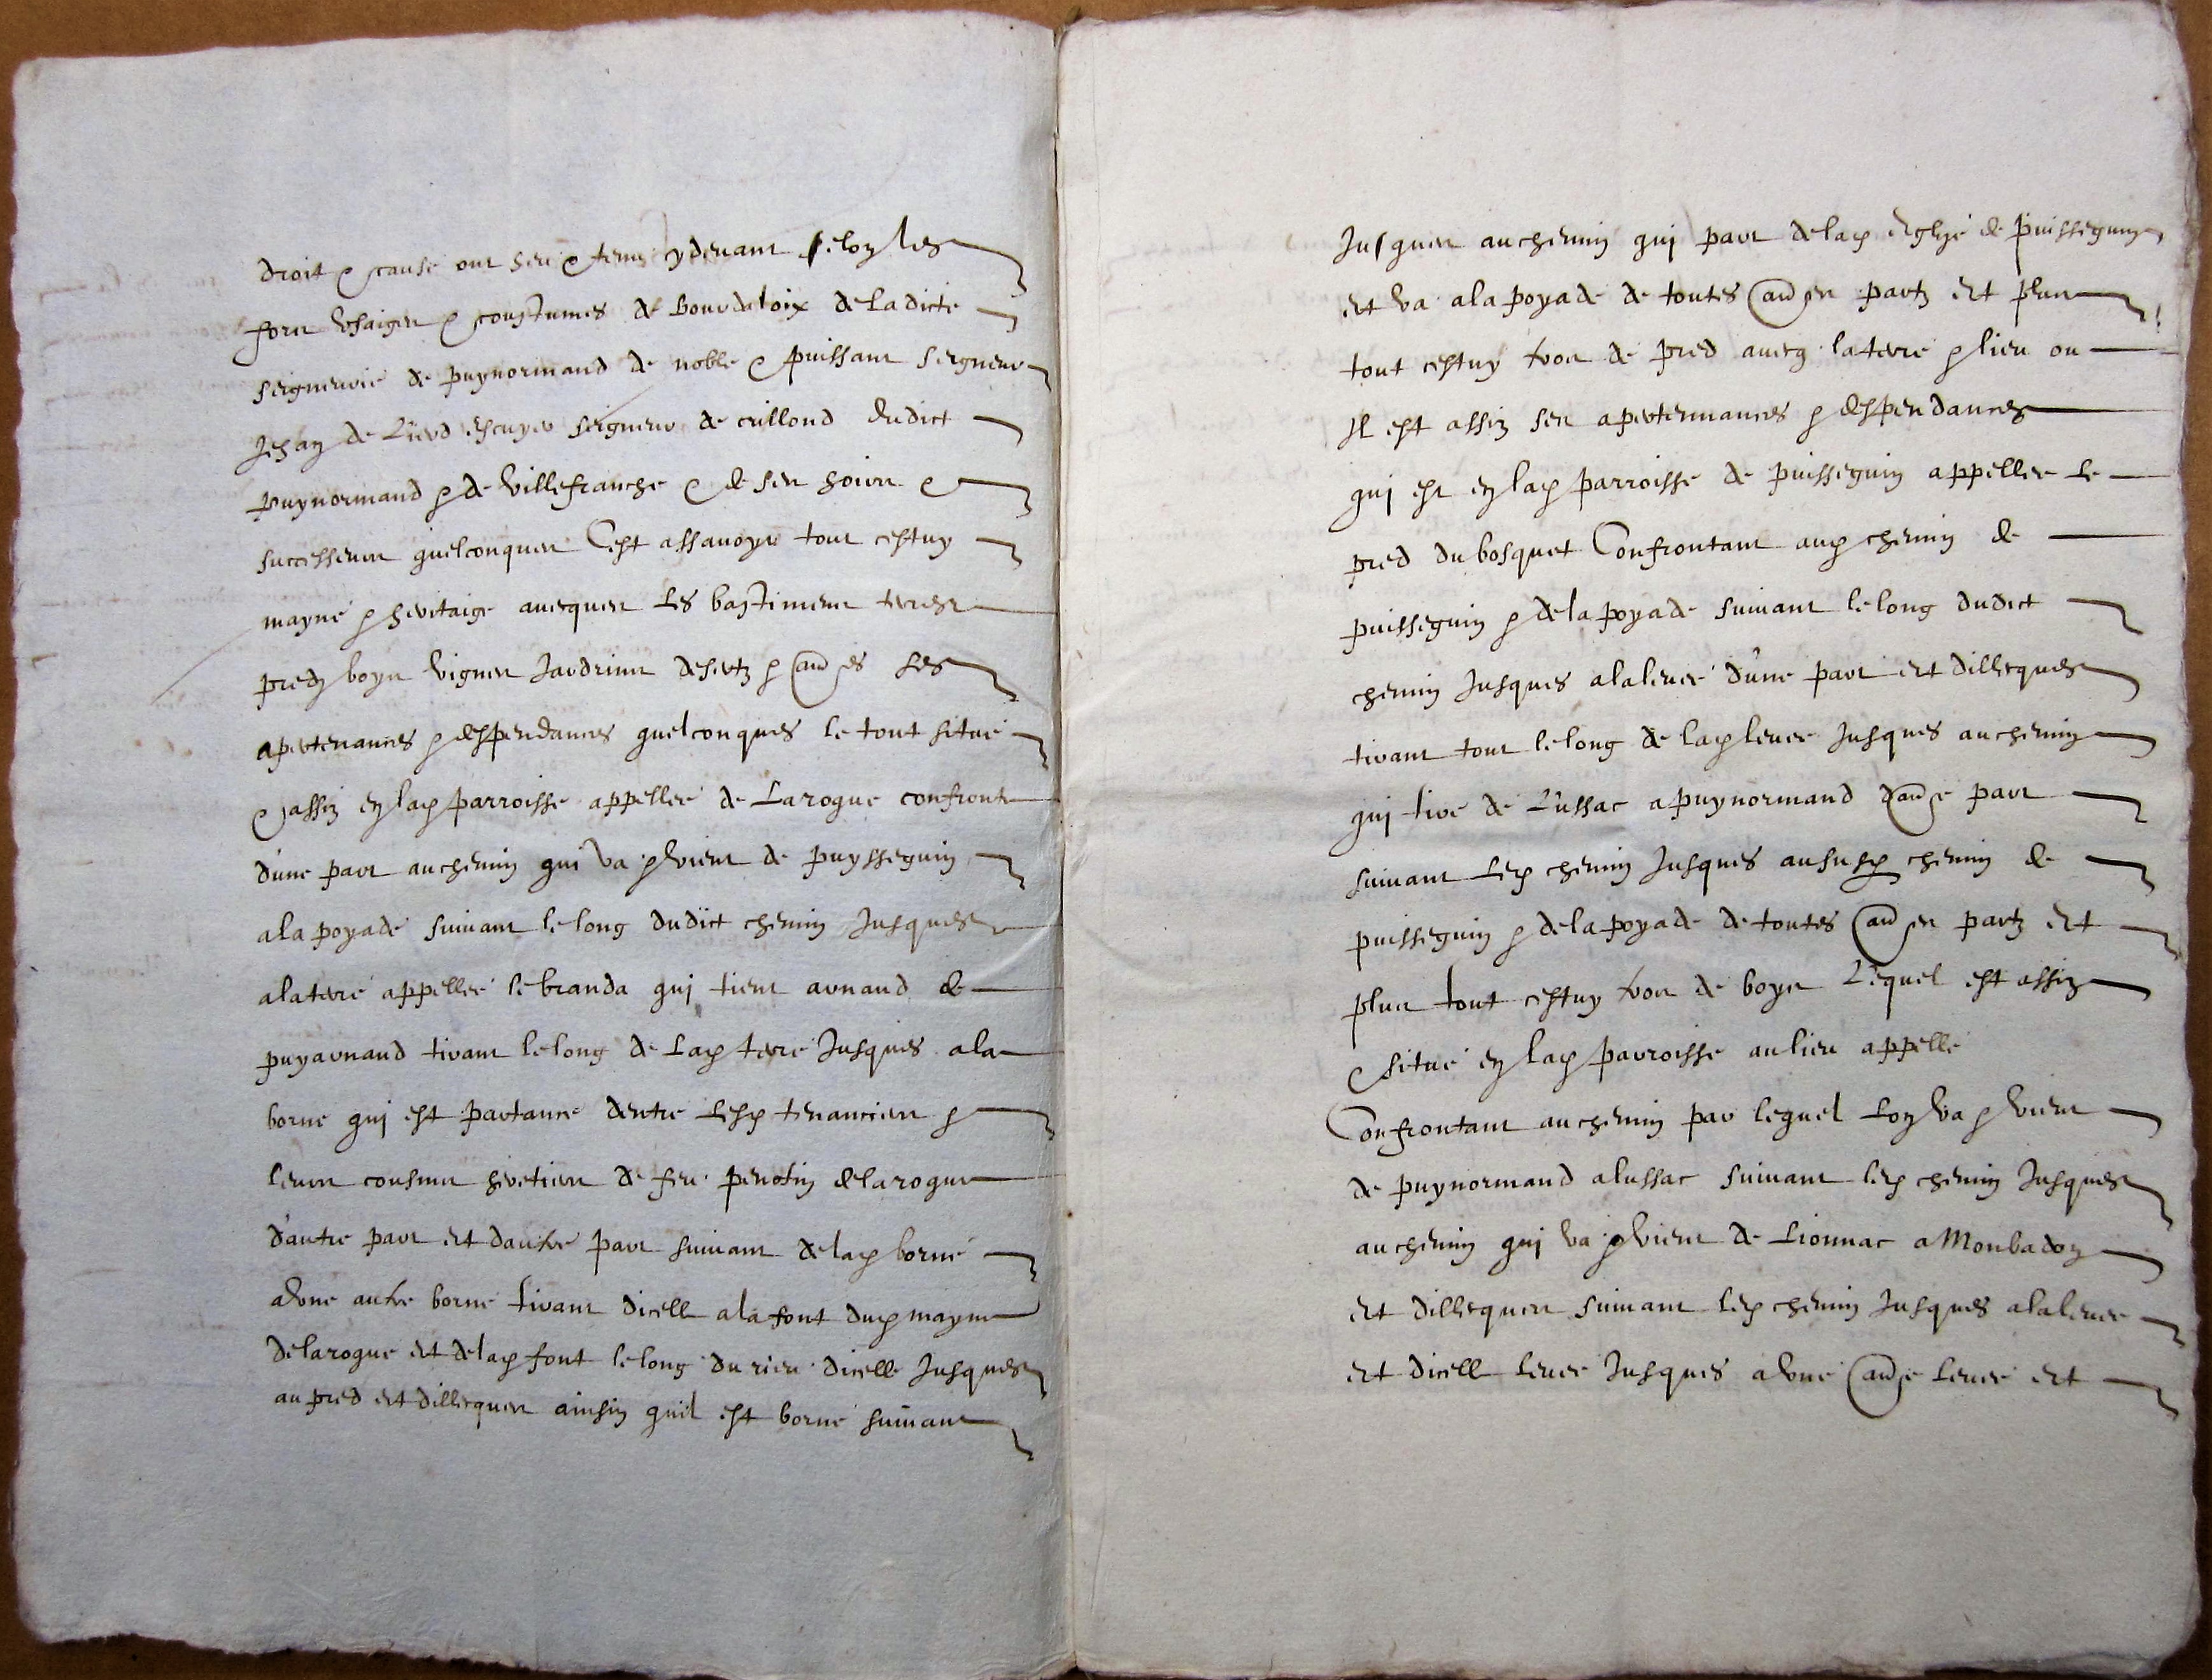 droit & cause ont heu & tenu cydevant selon les
fors usaiges & coustumes de bourdelois de ladicte
seigneurie de puynormand de noble & puissant seigneur
Jehan de Lurd escuyer seigneur de crillond dudict
puynormand & de villefranche & de ses hoirs &
successeurs quelconques Cest assavoyr tout cestuy
mayne & heritaige avecques les bastimens terres
predz boys vignes Jardrins desertz & au͞es ses
apertenances & despendances quelconques le tout situé
& assiz en lad parroisse appellee de Laroque confront
dune part au chemin qui va & vient de puysseguin
a la poyade suivant le long dudict chemin Jusques
a la terre appellee le branda qui tient arnaud de
puyarnaud tirant le long de lad terre Jusques a la
borne qui est partance dentre lesd tenanciers &
leurs cousins heretiers de feu penotin de laroque
dautre part et dautre part suivant de lad borne
a une autre borne tirant dicell a la font dud mayne
de laroque et de lad font le long du rieu dicelle Jusques
au pred et dillecques ainsin quil est borne suivant
Jusques au chemin qui part de lad eglise de puisseguin
et va a la poyade de toutes au͞es partz et plus
tout cestuy tros de pred avecq la terre & lieu ou
Il est assiz ses apertennances & despendances
qui est en lad parroisse de puisseguin appellee le
pred du bosquet Confrontant aud chemin de
puisseguin & de la poyade suivant le long dudict
chemin Jusques a la levee dune part et dillecques
tirant tout le long de lad levee Jusques au chemin
qui tire de Lussac a puynormand dau͞e part
suivant led chemin Jusques au susd chemin de
puisseguin & de la poyade de toutes au͞es partz et
plus tout cestuy tros de boys Lequel est assiz
& situé en lad parroisse au lieu appelle
Confrontant au chemin par lequel Lon va & vient
de puynormand a lussac suivant led chemin Jusques
au chemin qui va & vient de Lionnac a Monbadon
et dillecques suivant led chemin Jusques a la levee
et dicell levee Jusques a une au͞e levee et